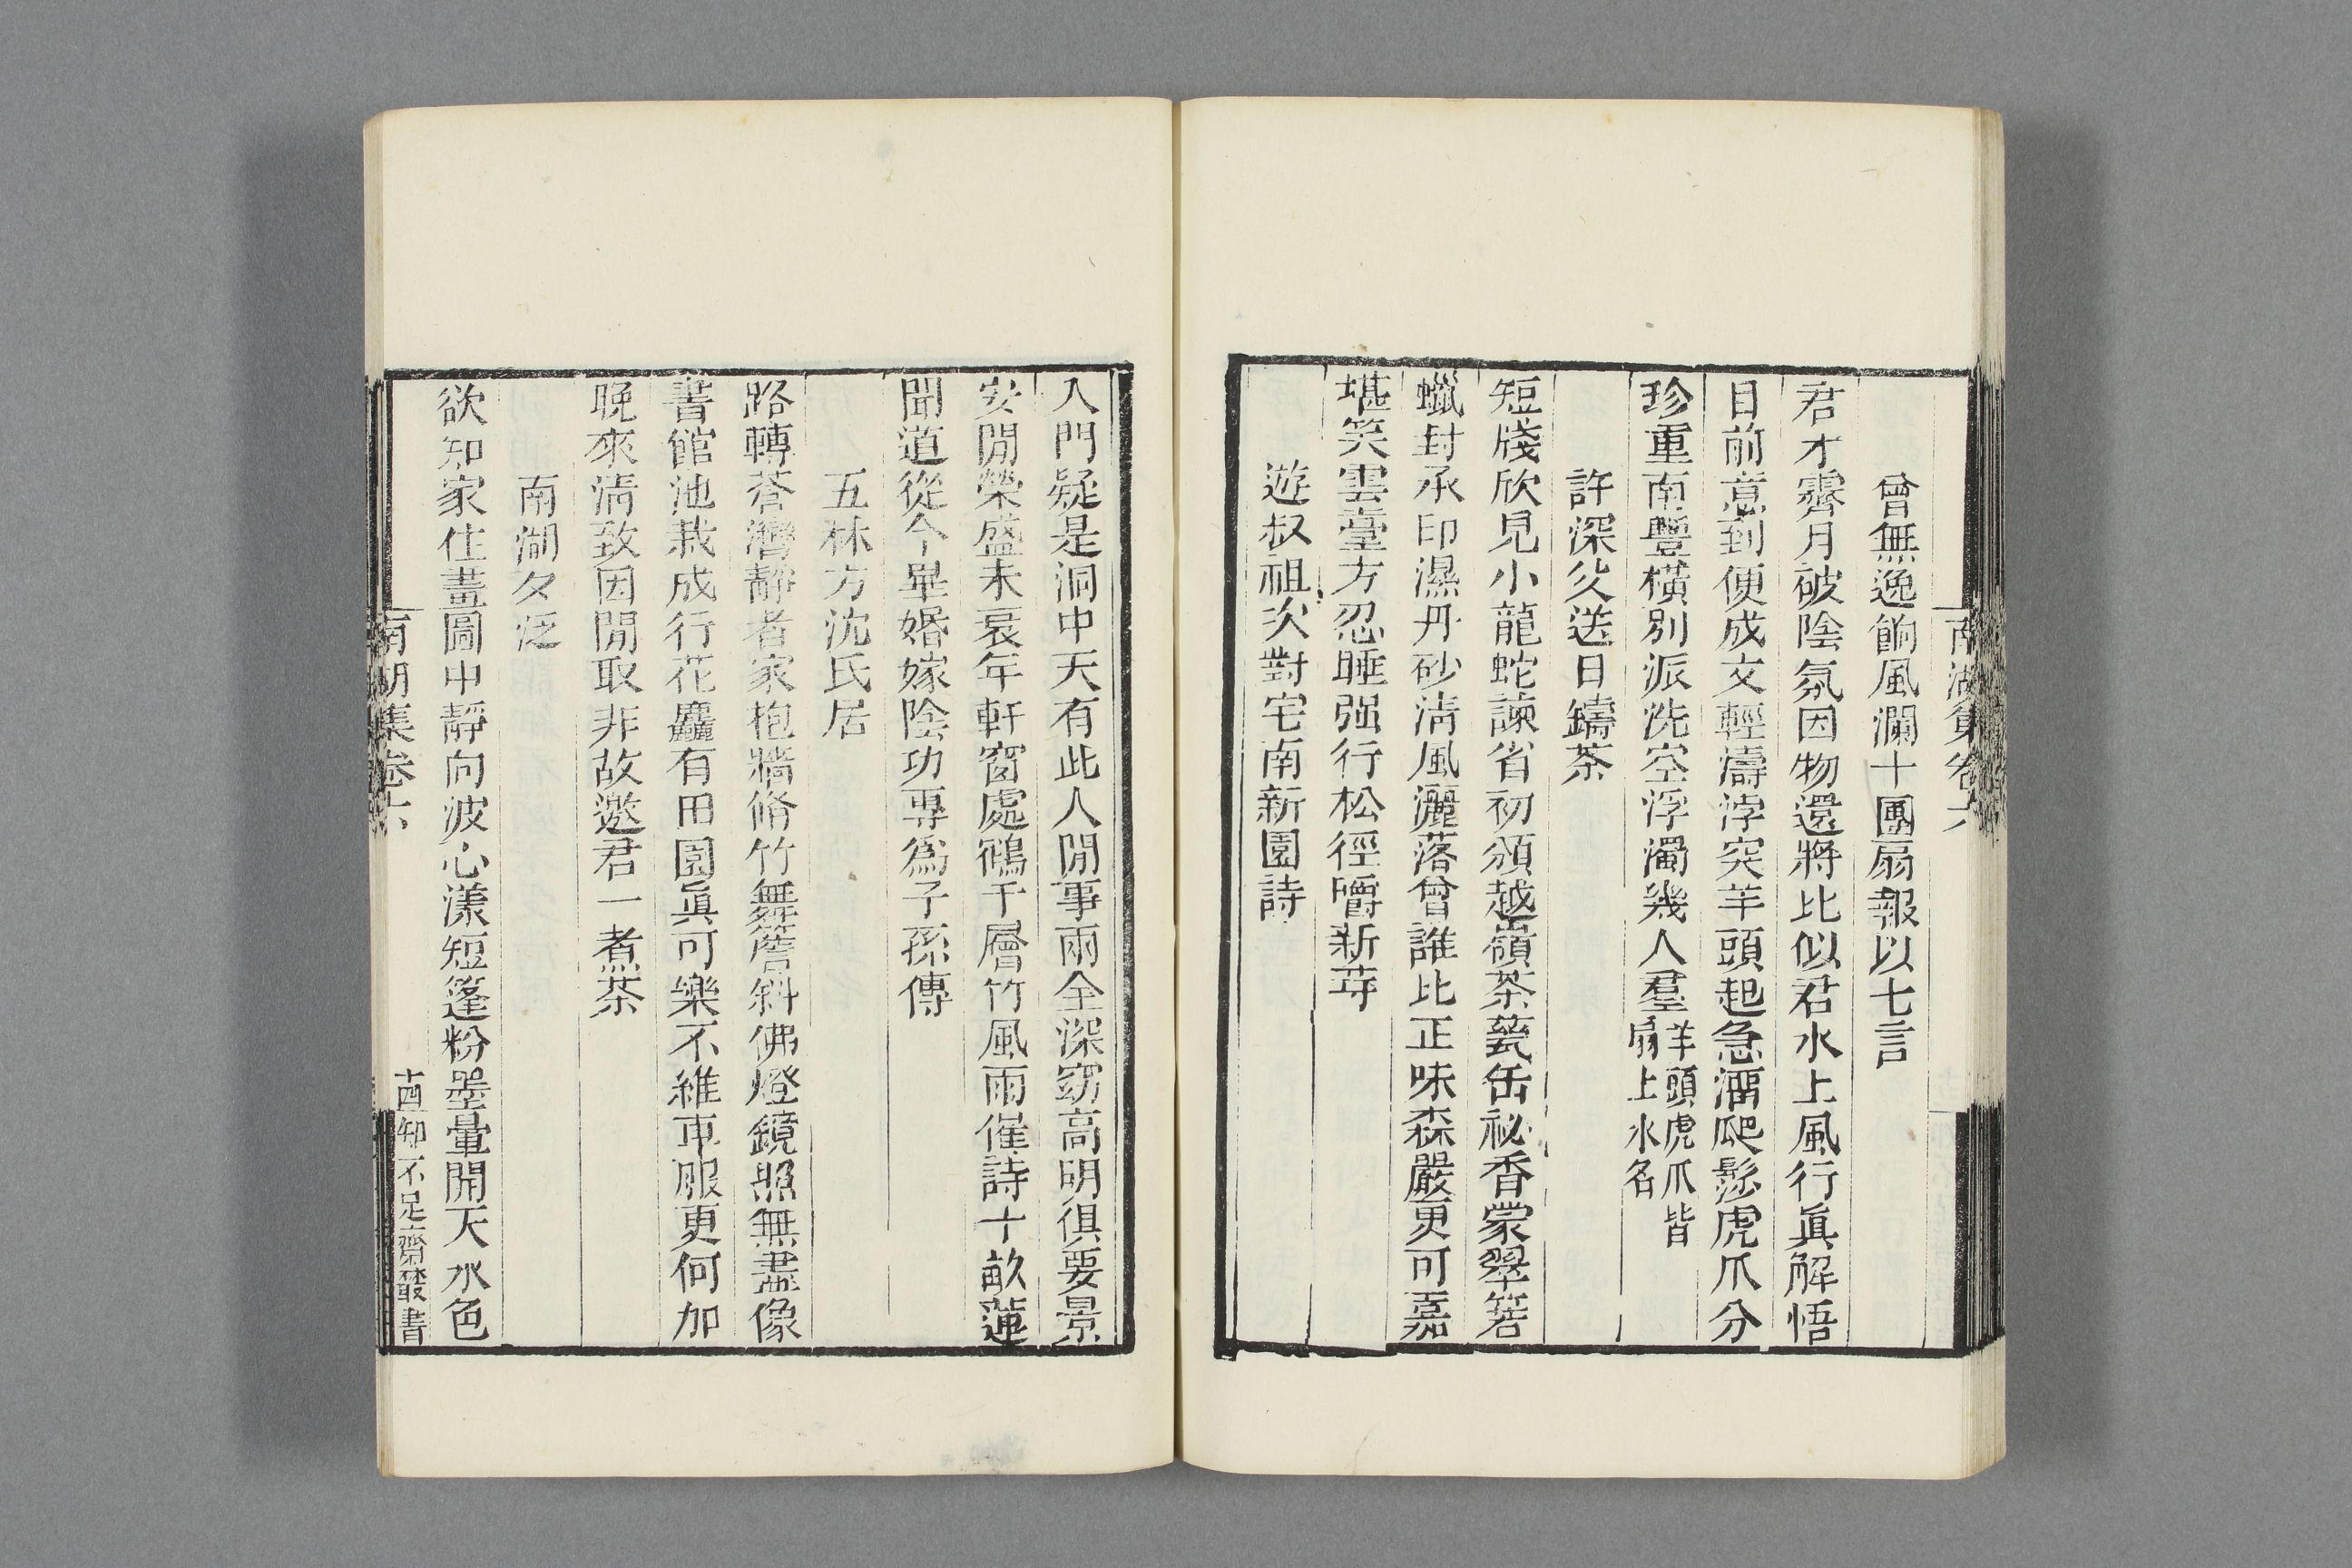 南湖集卷六
曾無逸餉風瀾十團扇報以七言
君才霽月破陰氛因物還將比似君水上風行眞解悟
目前意到便成文輕濤浡突羊頭起急溜爬鬆虎爪分
珍重南豐橫別派洗空浮濁幾人羣羊頭虎爪皆
扇上水名
許深父送日鑄茶
短牋欣見小龍蛇諫省初頒越嶺茶甆缶祕香蒙翠箬
蠟封承印濕丹砂淸風灑落曾誰比正味森嚴更可嘉
堪笑雲臺方忍睡强行松徑嚼新芽
遊叔祖次對宅南新園詩
入門疑是洞中天有此人閒事兩全深窈高明俱要景
安閒榮盛未衰年軒窗處處千層竹風雨催詩十畝蓮
聞道從今畢婚嫁陰功專爲子孫傳
五林方沈氏居
路轉蒼灣靜者家枹牆脩竹舞簷斜佛燈鏡照無盡像
書館池栽成行花麤有田園眞可樂不維車服更何加
晚來淸致因閒取非故邀君一煮茶
南湖夕泛
欲知家住畫圖中靜向波心漾短篷粉墨暈開天水色
南湖集卷六
知不足齋叢書